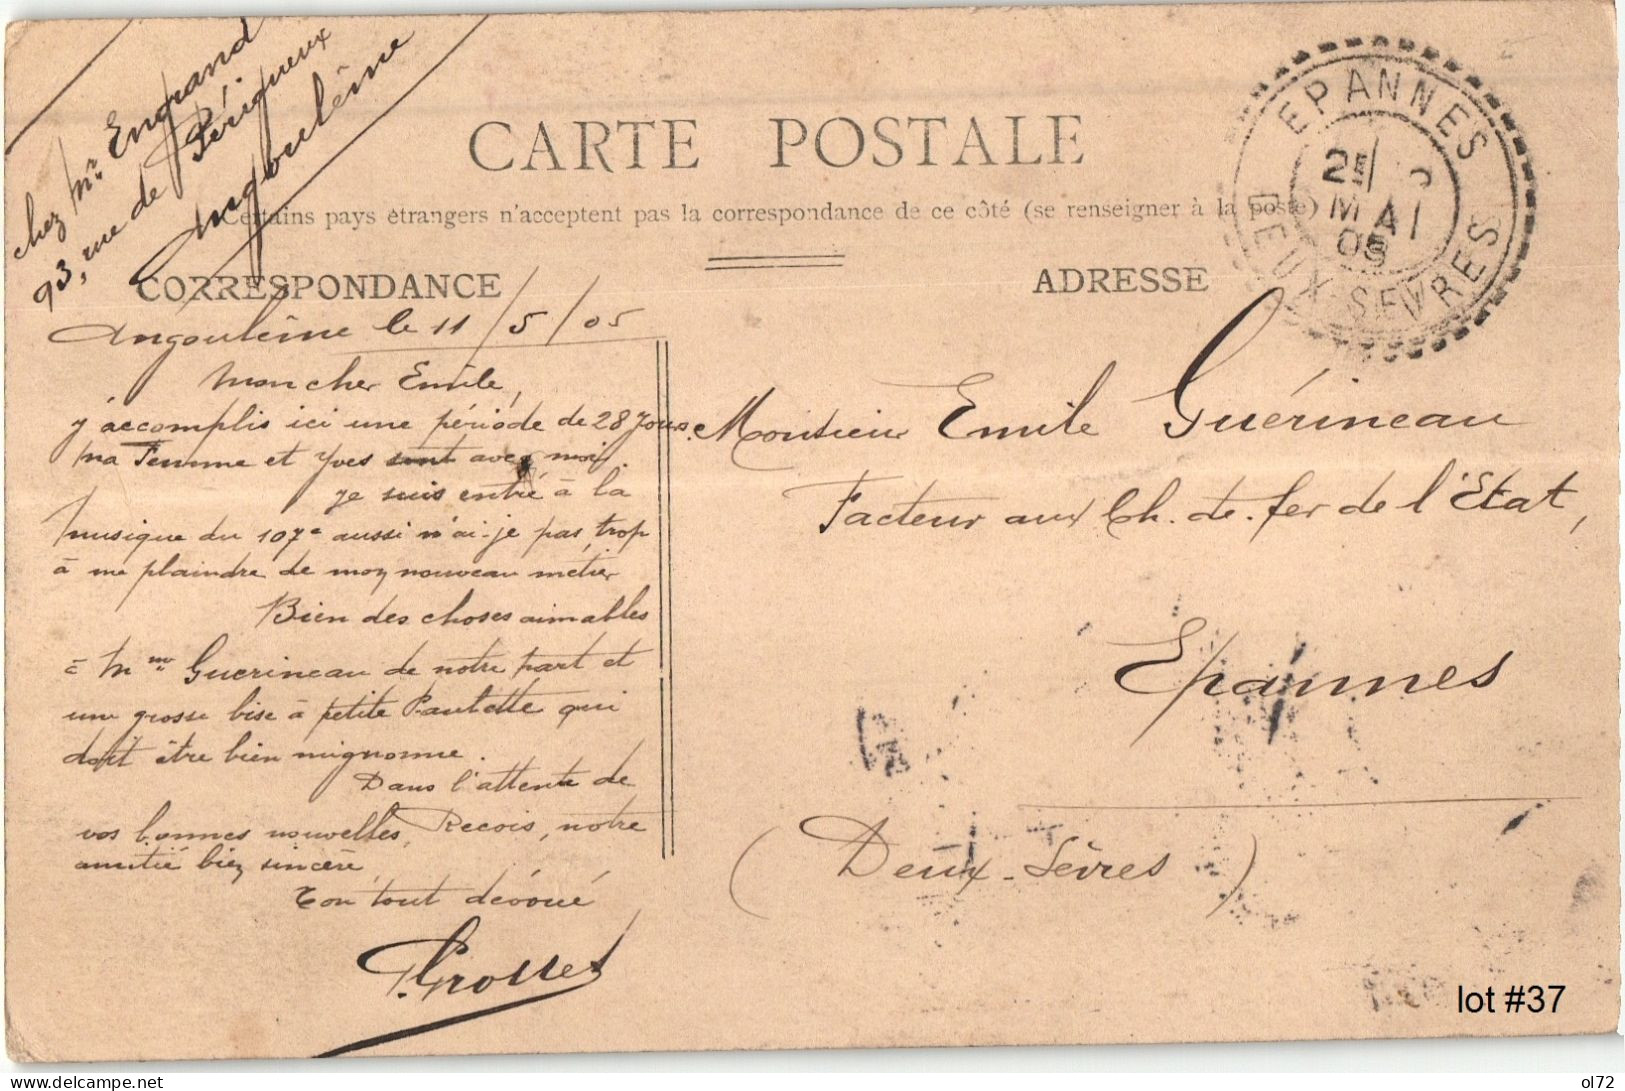 chez Mr. Engrand
93, rue de Périgueux
Angoulême
CARTE POSTALE
Certains pays étrangers n'acceptent pas la correspondance de ce côté (se renseigner à la poste)
CORRESPONDANCE
ADRESSE
EPANNES
2E
MAI
05
DEUX-SEVRES
Angoulême le 11/5/05
Mon cher Emile,
J'accomplis ici une période de 28 Jours.
Ma Femme et Yves sont avec moi.
Je suis entré à la
musique du 107e aussi n'ai-je pas trop
à me plaindre de mon nouveau métier
Bien des choses aimables
à Mme Guerineau de notre part et
une grosse bise à petite Paulette qui
doit être bien mignonne.
Dans l'attente de
vos bonnes nouvelles, Recois, notre
amitié bien sincère,
Ton tout dévoué
Monsieur Emile Guérineau
Facteur aux Ch. de. fer de l'Etat,
Epannes
(Deux-Sèvres)
lot #37
delcampe.net
ol72